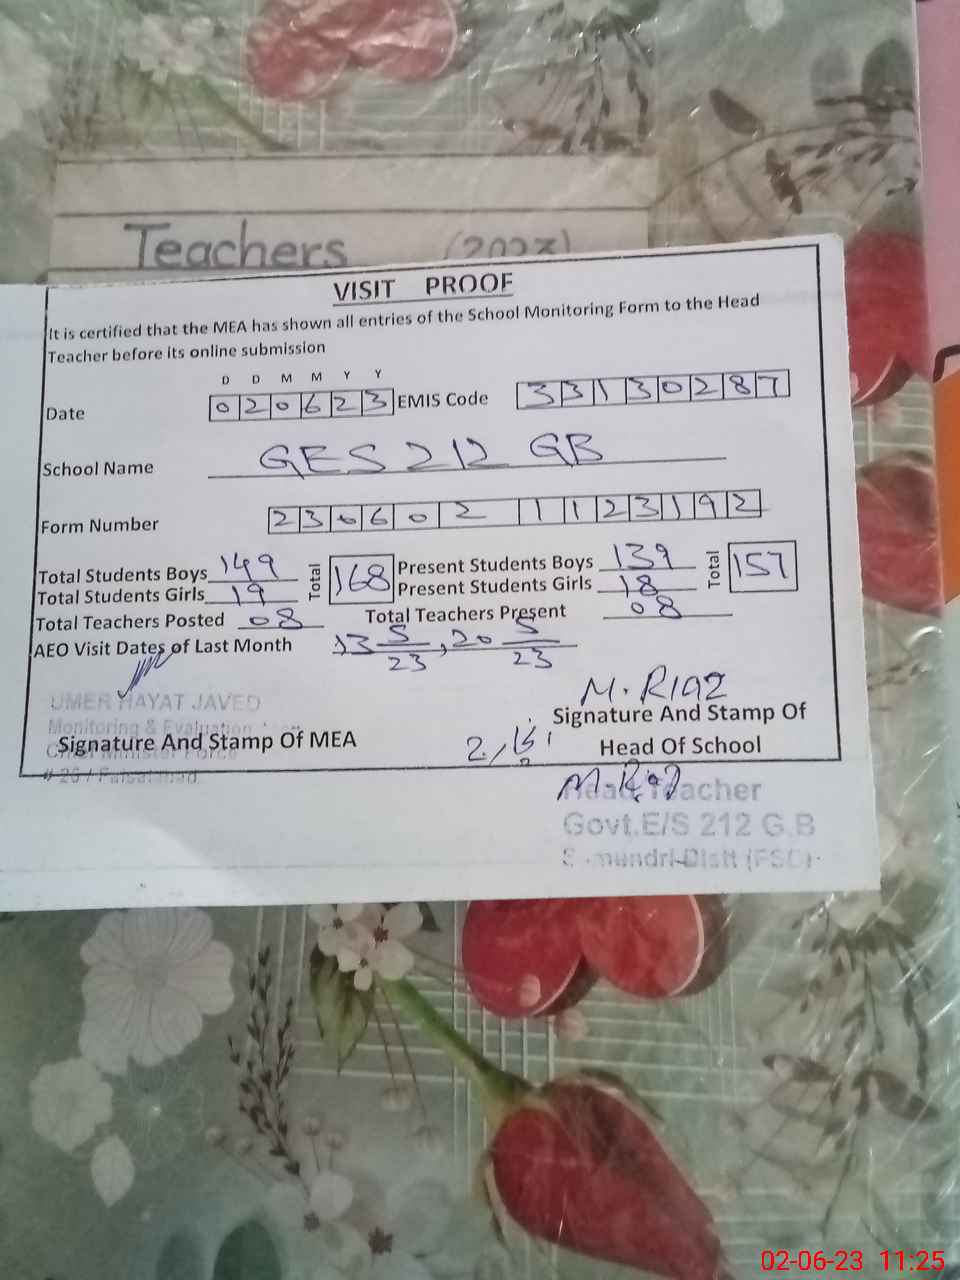 Teachers (2023)
VISIT PROOF
It is certified that the MEA has shown all entries of the School Monitoring Form to the Head
Teacher before its online submission
D D M M Y Y
Date 020623 EMIS Code 33130287
School Name GES 212 GB
Form Number 2306021123192
Total Students Boys 149 Total 168 Present Students Boys 139 Total 157
Total Students Girls 19 Present Students Girls 18
Total Teachers Posted 08 Total Teachers Present 08
AEO Visit Dates of Last Month 13 5/23, 20 5/23
UMER HAYAT JAVED
Monitoring & Evaluation
Signature And Stamp Of MEA
# 26 / Faisalabad
M. RIAZ
Signature And Stamp Of
Head Of School
M. Riaz
Head Teacher
Govt.E/S 212 G.B
Samundri Distt (FSD)
02-06-23 11:25